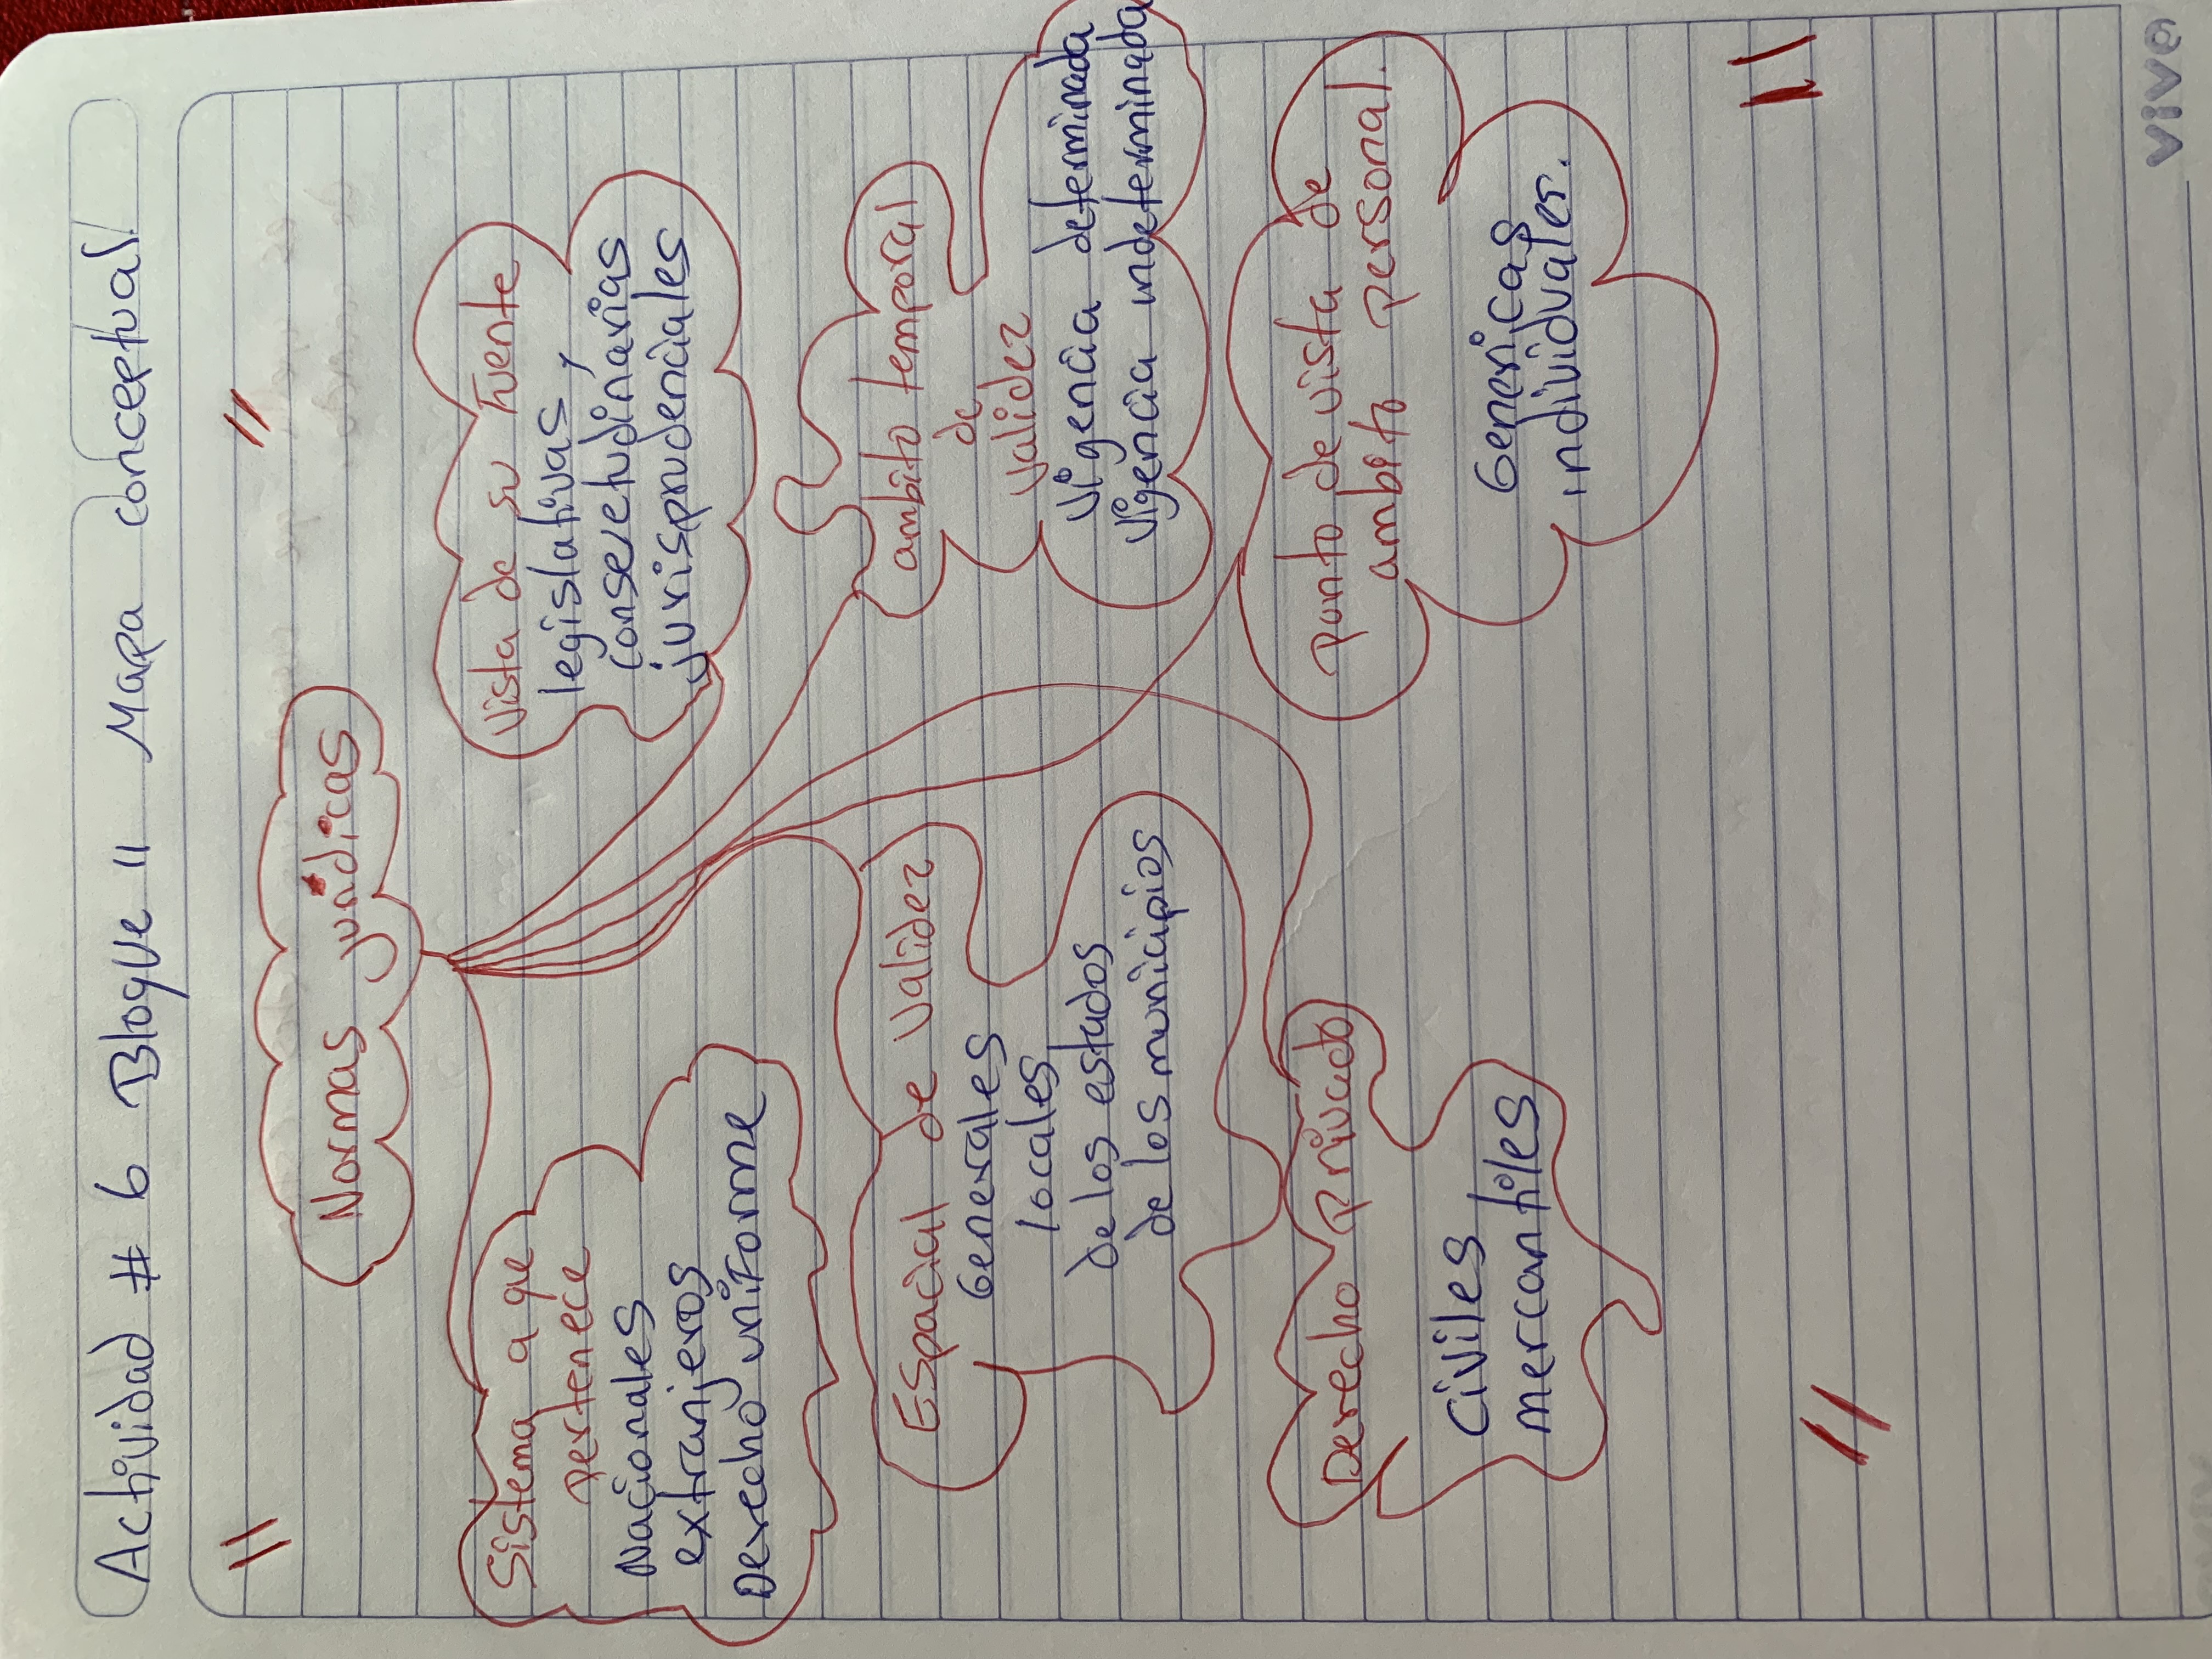 Actividad # 6 Bloque II Mapa conceptual.
Normas jurídicas
Sistema a que
pertenece
Nacionales
extranjeros
Derecho uniforme
Vista de su fuente
legislativas,
consevetudinarias
jurisprudenciales
Espacial de validez
Generales
locales
de los estados
de los municipios
ambito temporal
de
validez
vigencia determinada
vigencia indeterminada
Derecho privado
civiles
mercantiles
punto de vista de
ambito personal.
Genericas
individuales.
vivo